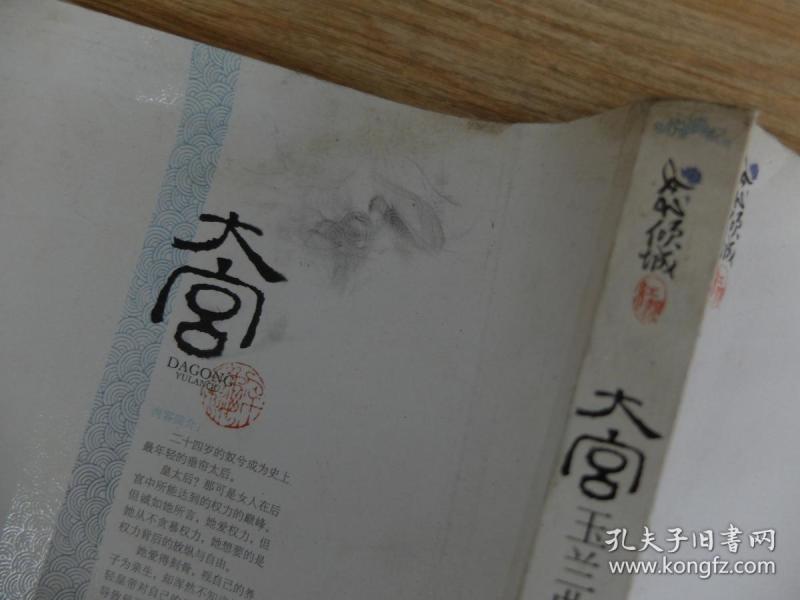 大宫
DAGONG
YULANQU
内容简介:
二十四岁的奴兮成为史上
最年轻的垂帘太后。
皇太后？那可是女人在后
宫中所能达到的权力的巅峰。
但诚如她所言，她爱权力，但
她从不贪慕权力，她想要的是
权力背后的放纵与自由。
她爱得刻骨，视自己的养
子为亲生，却浑然不知
轻皇帝对自己的
倾城
大宫
玉兰曲
倾城
孔夫子旧书网
www.kongfz.com